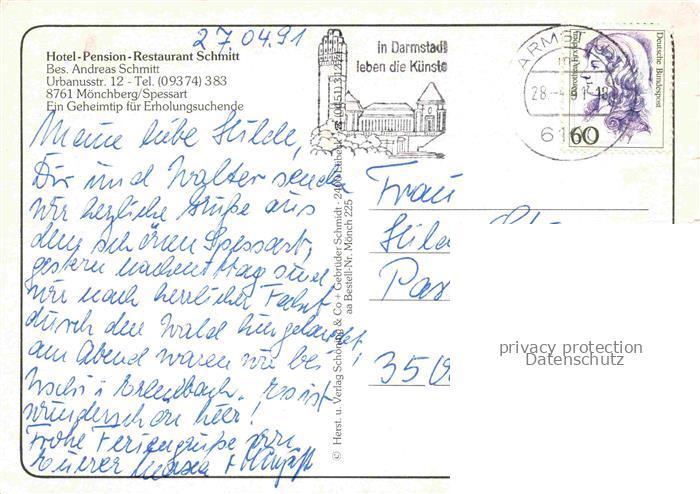 27.04.91
Hotel-Pension-Restaurant Schmitt
Bes. Andreas Schmitt
Urbanusstr. 12 - Tel. (09374) 383
8761 Mönchberg/Spessart
Ein Geheimtip für Erholungsuchende
Meine liebe Hilde,
Dir und Walter senden
wir herzliche Grüße aus
dem schönen Spessart,
gestern nachmittag sind
wir nach herrlicher Fahrt
durch den Wald hier gelandet,
am Abend waren wir bei
in Erlenbach. Es ist
wunderschön hier!
Frohe Feriengrüße von
Eurer
in Darmstadt
leben die Künste
28.-4.91-18
61
Deutsche Bundespost
60
© Herst. u. Verlag Schöning & Co + Gebrüder Schmidt - 2400 Lübeck
aa Bestell-Nr. Mönch 225
Frau
Hild
35
privacy protection
Datenschutz